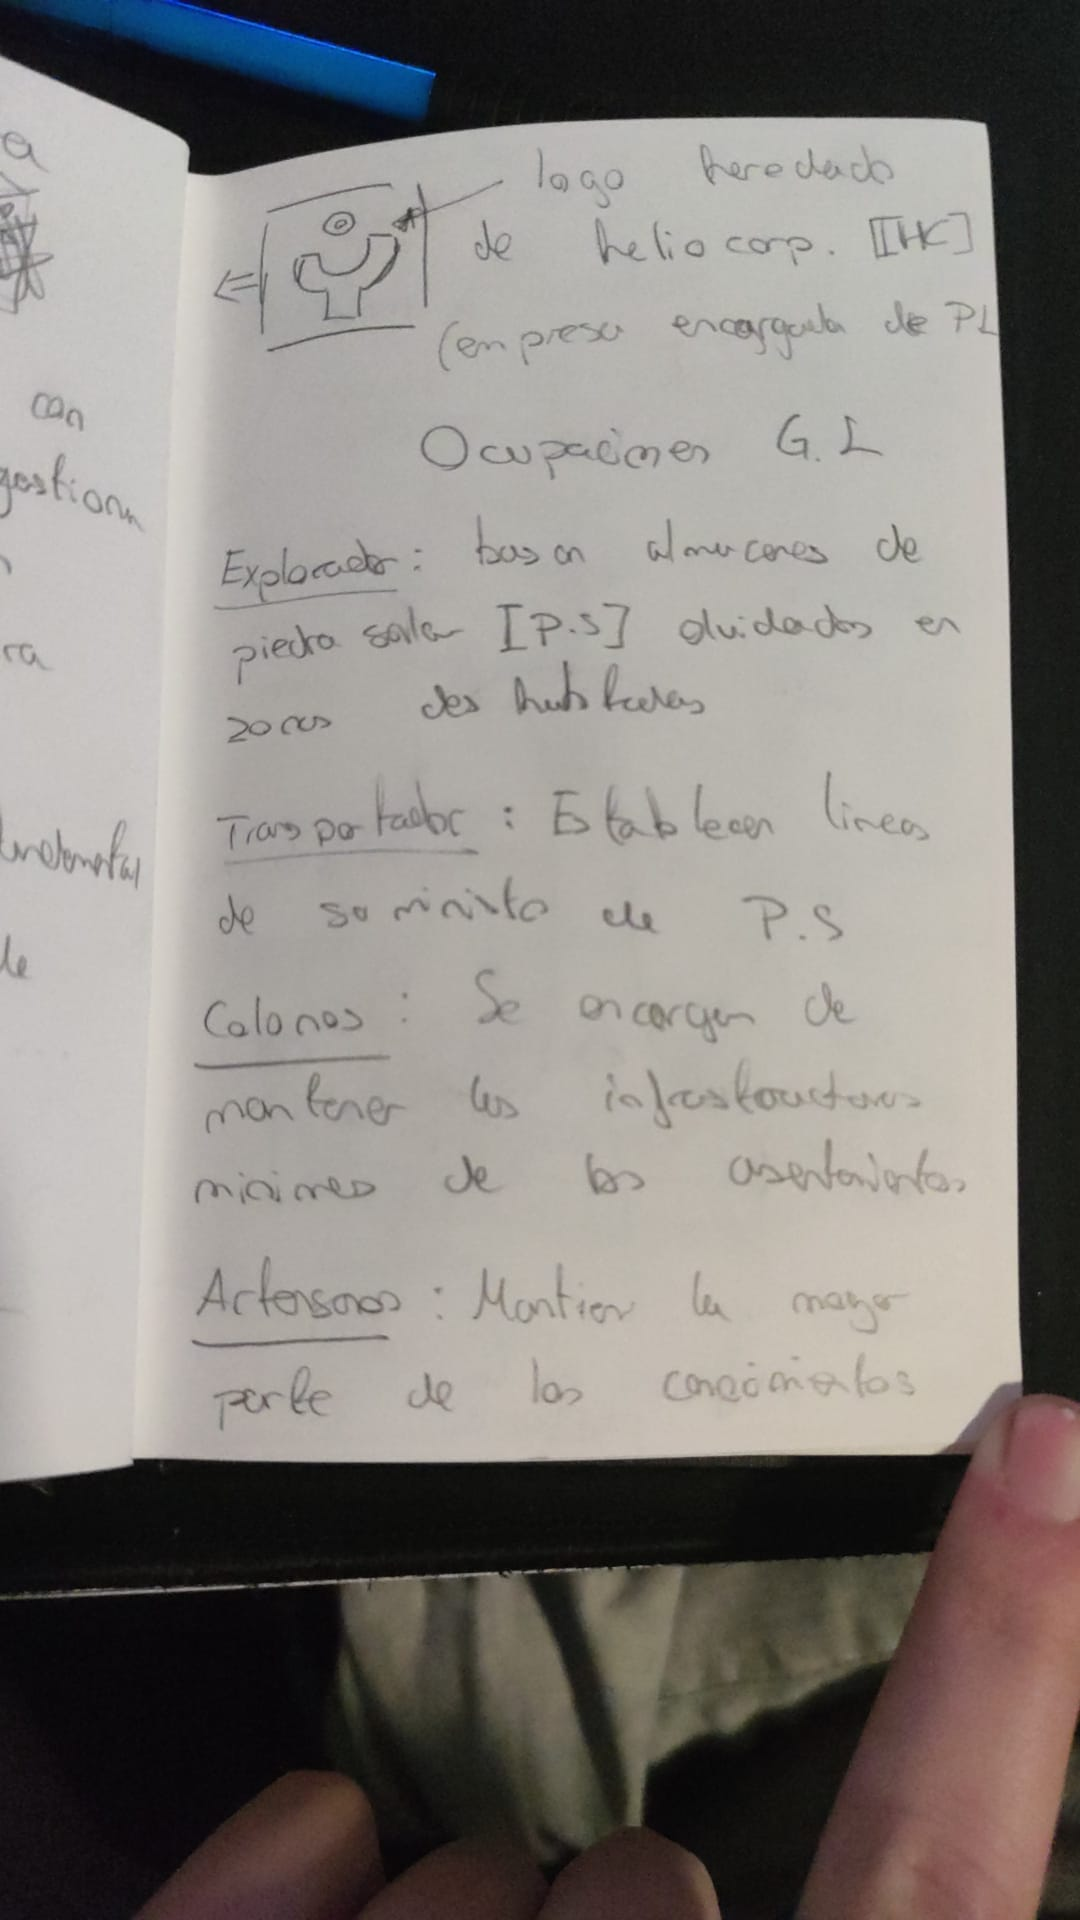 a
can
gestionn
ra
de
logo heredado
de heliocorp. [HC]
(empresa encargada de PL
Ocupaciones G.L
Explorador: buscan almacenes de
piedra solar [P.S] olvidados en
zonas deshabitadas
Transportador: Establecen lineas
de suministro de P.S
Colonos: Se encargan de
mantener las infrastructuras
minimas de los asentamientos
Artersanos: Mantien la mayor
parte de los conocimientos